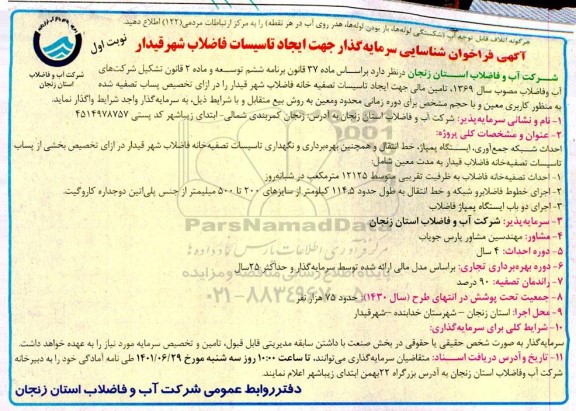 هرگونه اتلاف قابل توجه آب (شکستگی لوله‌ها، باز بودن لوله‌ها، هدر روی آب در هر نقطه) را به مرکز ارتباطات مردمی (۱۲۲) اطلاع دهید.
آگهی فراخوان شناسایی سرمایه‌گذار جهت ایجاد تاسیسات فاضلاب شهر قیدار
نوبت اول
شرکت آب و فاضلاب
استان زنجان
شرکت آب و فاضلاب استان زنجان درنظر دارد براساس ماده ۳۷ قانون برنامه ششم توسعه و ماده ۲ قانون تشکیل شرکت‌های
آب وفاضلاب مصوب سال ۱۳۶۹، تامین مالی جهت ایجاد تاسیسات تصفیه خانه فاضلاب شهر قیدار را در ازای تخصیص پساب تصفیه شده
به منظور کاربری معین و با حجم مشخص برای دوره زمانی محدود ومعین به روش بیع متقابل و با شرایط ذیل، به سرمایه‌گذار واجد شرایط واگذار نماید.
۱- نام و نشانی سرمایه‌پذیر: شرکت آب و فاضلاب استان زنجان به آدرس: زنجان کمربندی شمالی- ابتدای زیباشهر کد پستی ۴۵۱۴۹۷۸۷۵۷
۲- عنوان و مشخصات کلی پروژه:
احداث شبکه جمع‌آوری، ایستگاه پمپاژ، خط انتقال و همچنین بهره‌برداری و نگهداری تاسیسات تصفیه‌خانه فاضلاب شهر قیدار در ازای تخصیص بخشی از پساب
تاسیسات تصفیه‌خانه فاضلاب قیدار به مدت معین شامل:
۱- احداث تصفیه‌خانه فاضلاب به ظرفیت تقریبی متوسط ۱۲۱۲۵ مترمکعب در شبانه‌روز
۲- اجرای خطوط فاضلابرو شبکه و خط انتقال به طول حدود ۱۱۴.۵ کیلومتر از سایزهای ۲۰۰ تا ۵۰۰ میلیمتر از جنس پلی‌اتیلن دوجداره کاروگیت.
۳- اجرای دو باب ایستگاه پمپاژ فاضلاب
۳- سرمایه‌پذیر: شرکت آب و فاضلاب استان زنجان
۴- مشاور: مهندسین مشاور پارس جویاب
۵- دوره احداث: ۴ سال
۶- دوره بهره‌برداری تجاری: براساس مدل مالی ارائه شده توسط سرمایه‌گذار و حداکثر ۲۵سال
۷- راندمان تصفیه: ۹۰ درصد
۸- جمعیت تحت پوشش در انتهای طرح (سال ۱۴۳۰): حدود ۷۵ هزار نفر
۹- محل اجرا: استان زنجان - شهرستان خدابنده - شهر قیدار
۱۰- شرایط کلی برای سرمایه‌گذاری:
سرمایه‌گذار به صورت شخص حقیقی یا حقوقی در بخش صنعت با داشتن سابقه مدیریتی قابل قبول، تامین و تخصیص سرمایه مورد نیاز را به عهده خواهد داشت.
۱۱- تاریخ و آدرس دریافت اسناد: متقاضیان سرمایه‌گذاری می‌توانند، تا ساعت ۱۰:۰۰ روز سه شنبه مورخ ۱۴۰۱/۰۶/۲۹ طی نامه آمادگی خود را به دبیرخانه
شرکت آب وفاضلاب استان زنجان به آدرس بزرگراه ۲۲بهمن ابتدای زیباشهر اعلام نمایند.
دفتر روابط عمومی شرکت آب و فاضلاب استان زنجان
ParsNamadData
مرکز فرآوری اطلاعات پارس نماد داده‌ها
پایگاه اطلاع رسانی مناقصه و مزایده
۰۲۱-۸۸۳۴۹۶۷۰-۵